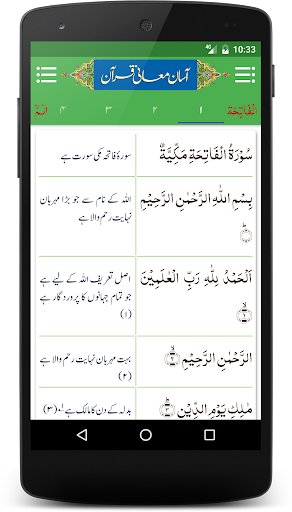 10:33
آسان معانی قرآن
اَلْفَاتِحَة ۱ ۲ ۳ ۴ الٓمّٓ
سُوْرَةُ الْفَاتِحَةِ مَكِّيَّةٌ
سورۂ فاتحہ مکی سورت ہے
بِسْمِ اللّٰهِ الرَّحْمٰنِ الرَّحِيْمِ
اللہ کے نام سے جو بڑا مہربان
نہایت رحم والا ہے
اَلْحَمْدُ لِلّٰهِ رَبِّ الْعٰلَمِيْنَ
اصل تعریف اللہ کے لیے ہے
جو تمام جہانوں کا پروردگار ہے
(۱)
الرَّحْمٰنِ الرَّحِيْمِ
بہت مہربان نہایت رحم والا ہے
(۲)
مٰلِكِ يَوْمِ الدِّيْنِ
بدلہ کے دن کا مالک ہے (۳)